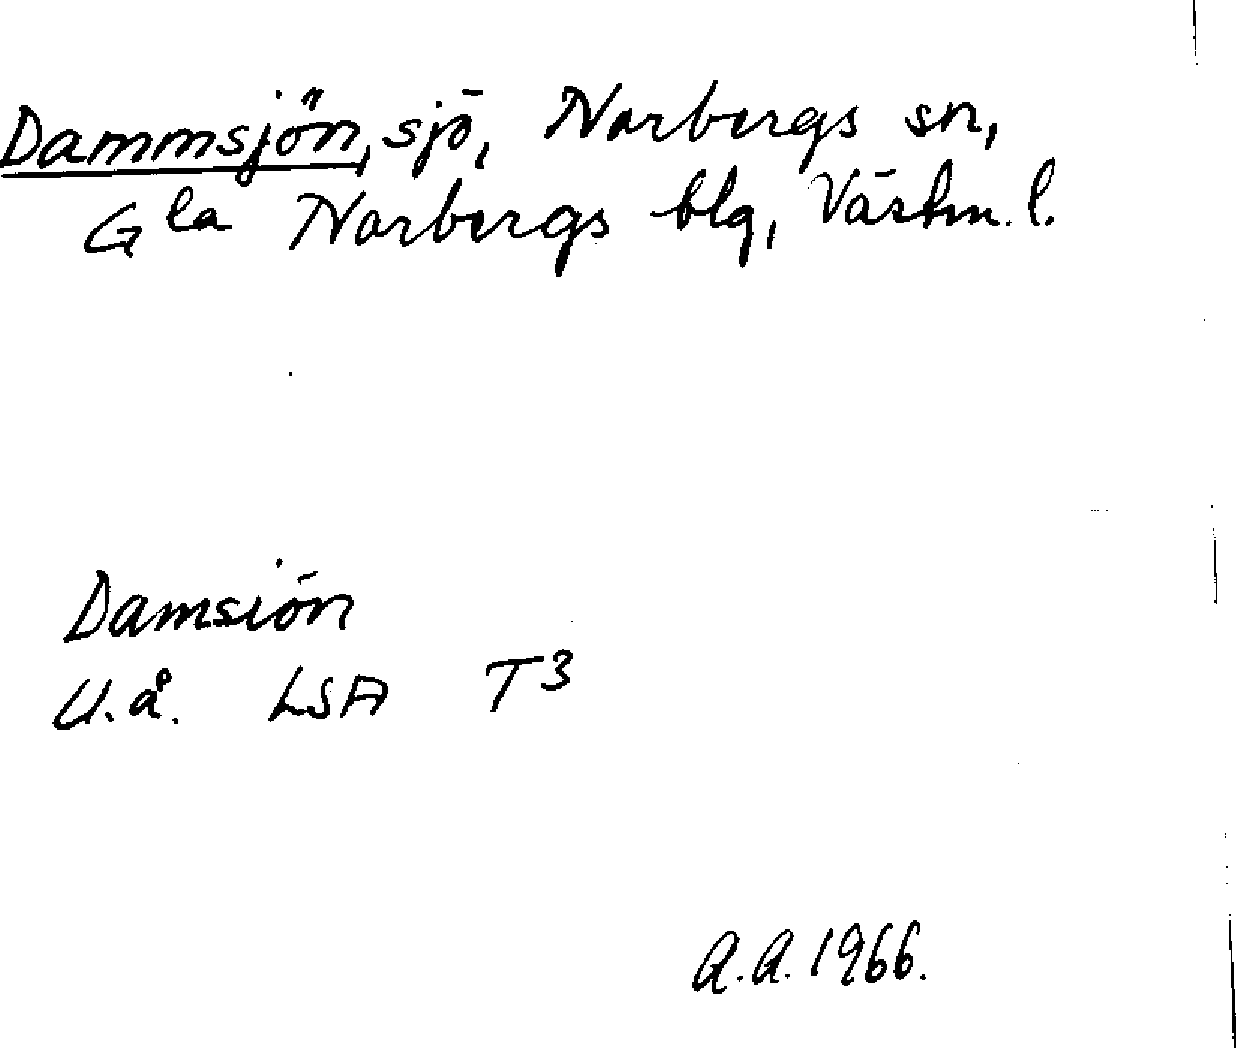 Dammsjön, sjö, Norbergs sn,
Gla Norbergs blg, Västm. l.
Damsiön
U.å. LSA T3
A.A. 1966.